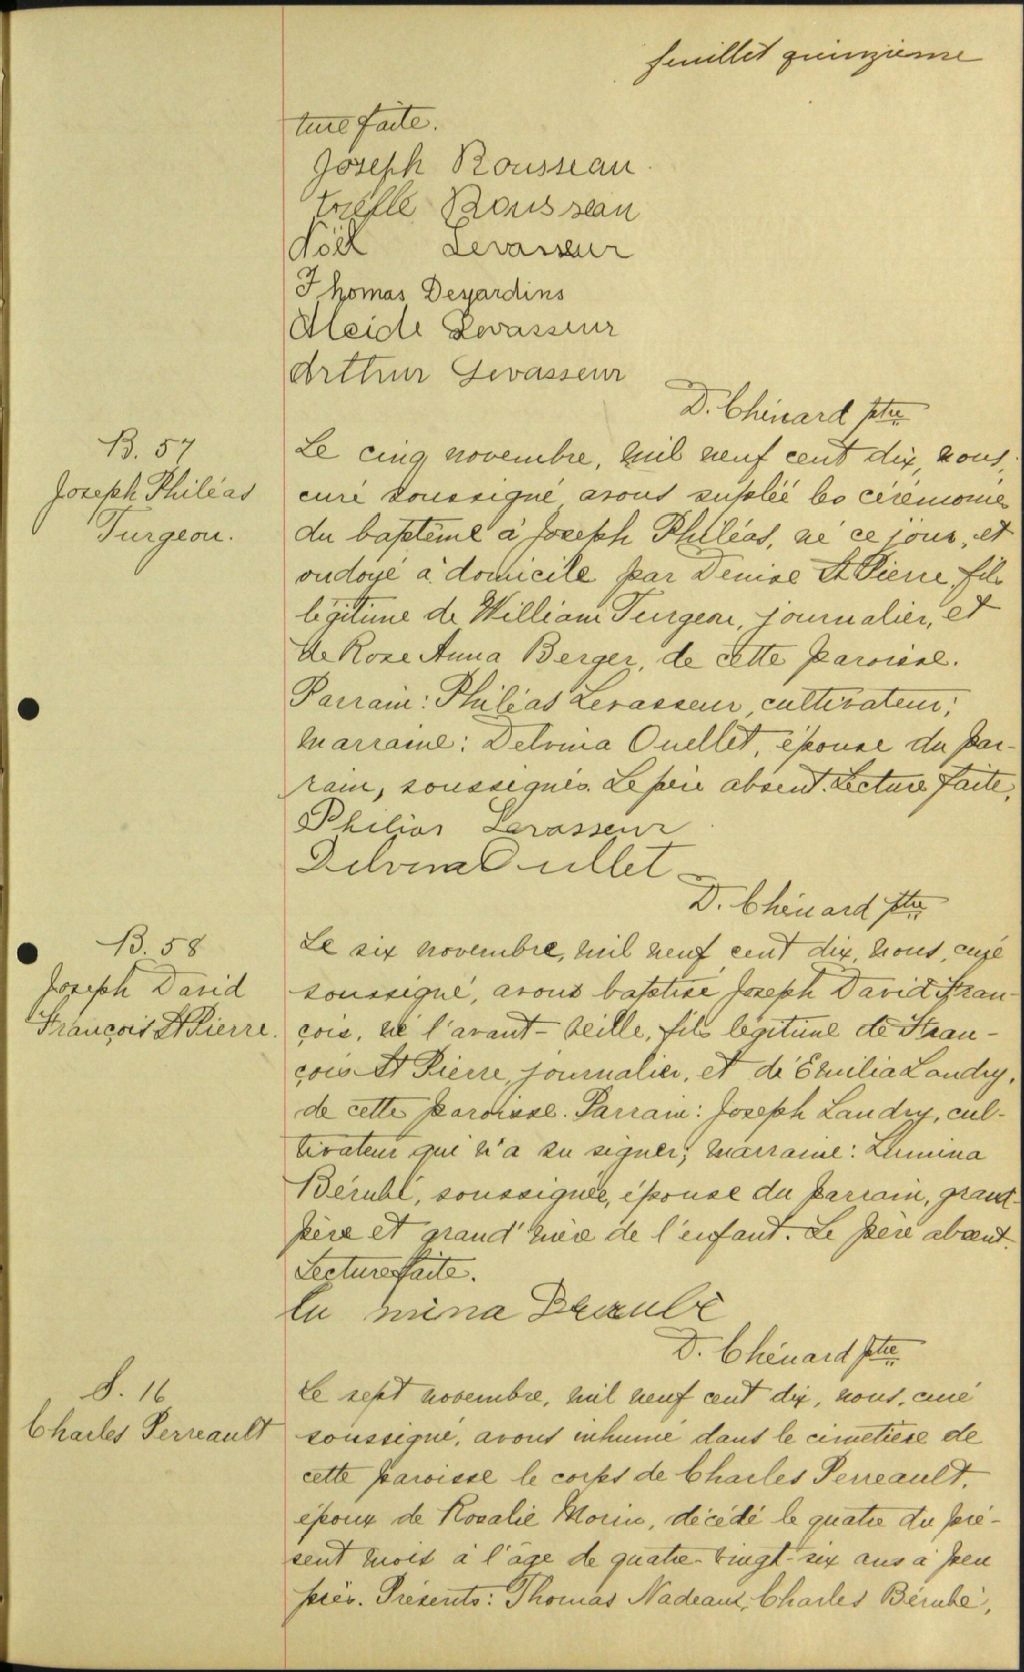 feuillet quinzième
ture faite.
Joseph Rousseau
Noël Levasseur
Thomas Desjardins
Alcide Levasseur
Arthur Levasseur
D. Chénard ptre
B. 57
Joseph Philéas
Turgeon.
Le cinq novembre, mil neuf cent dix, nous,
curé soussigné avons supléé les cérémonies
du baptême à Joseph Philéas, né ce jour, et
ondoyé à domicile par Denise St Pierre, fils
légitime de William Turgeon, journalier, et
de Rose Anna Berger, de cette paroisse.
Parrain: Philéas Levasseur, cultivateur;
marraine: Delvina Ouellet, épouse du par-
rain, soussignés. Le père absent. Lecture faite.
Philias Levasseur
Delvina Oullet
D. Chénard ptre
B. 58
Joseph David
François St Pierre.
Le six novembre, mil neuf cent dix, nous, curé
soussigné, avons baptisé Joseph David Fran-
çois, né l'avant-veille, fils légitime de Fran-
çois St Pierre, journalier, et de Emilia Landry,
de cette paroisse. Parrain: Joseph Landry, cul-
tivateur qui n'a su signer; marraine: Lumina
Bérubé, soussignée, épouse du parrain, grand-
père et grand'mère de l'enfant. Le père absent.
Lecture faite.
Lu mina Berubé
D. Chénard ptre
S. 16
Charles Perreault
Le sept novembre, mil neuf cent dix, nous, curé
soussigné, avons inhumé dans le cimetière de
cette paroisse le corps de Charles Perreault,
époux de Rosalie Morin, décédé le quatre du pré-
sent mois à l'âge de quatre-vingt-six ans à peu
près. Présents: Thomas Nadeau, Charles Bérubé,